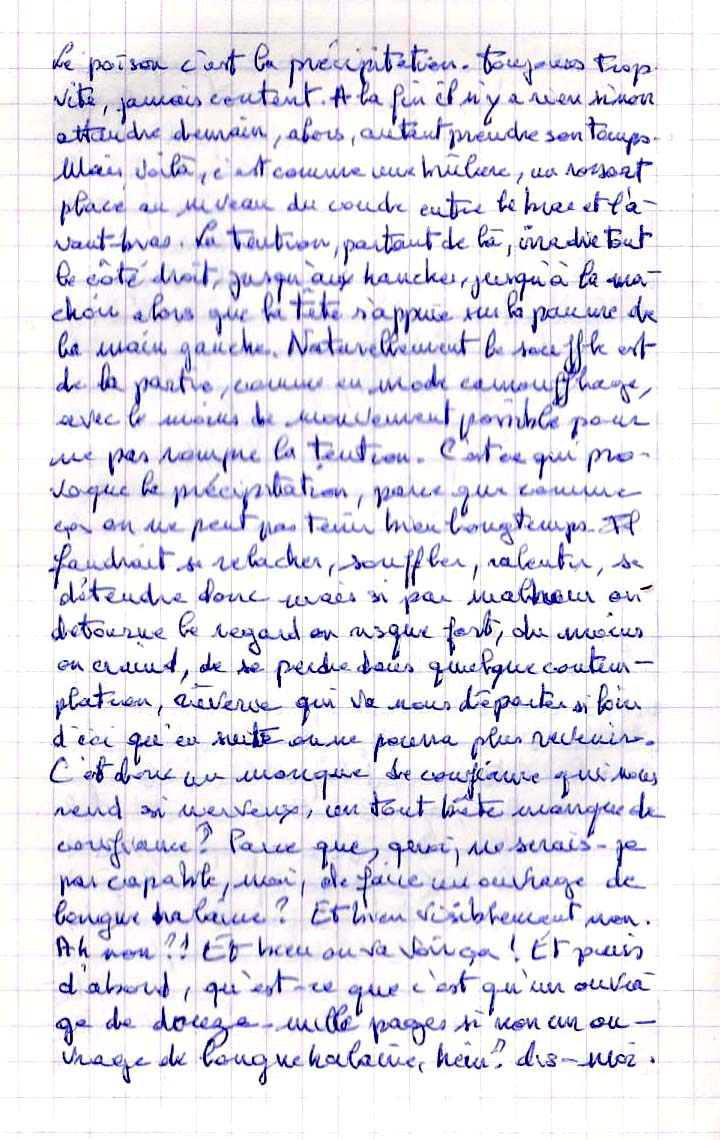 Le poison c'est la précipitation. toujours trop
vite, jamais content. A la fin il n'y a rien sinon
attendre demain, alors, autant prendre son temps.
Mais voilà, c'est comme une brûlure, un ressort
placé au niveau du coude entre le bras et l'a-
vant-bras. La tention, partant de là, irradie tout
le côté droit, jusqu'aux hanches, jusqu'à la ma-
choire alors que la tête s'appuie sur la paume de
la main gauche. Naturellement le souffle est
de la partie, comme en mode camouflage,
avec le moins de mouvement possible pour
ne pas rompre la tention. C'est ce qui pro-
voque la précipitation, parce que comme
ça on ne peut pas tenir bien longtemps. Il
faudrait se relacher, souffler, ralentir, se
détendre donc mais si par malheur on
detourne le regard on risque fort, du moins
on craint, de se perdre dans quelque contem-
plation, rêverie qui va nous déporter si loin
d'ici qu'en suite on ne pourra plus revenir.
C'est donc un manque de confiance qui nous
rend si nerveux, un tout bête manque de
confiance? Parce que, quoi, ne serais-je
pas capable, moi, de faire un ouvrage de
longue halaine? Et bien visiblement non.
Ah non?! Et bien on va voir ça! Et puis
d'abord, qu'est-ce que c'est qu'un ouvra-
ge de douze-mille pages si non un ou-
vrage de longue halaine, hein? dis-moi.